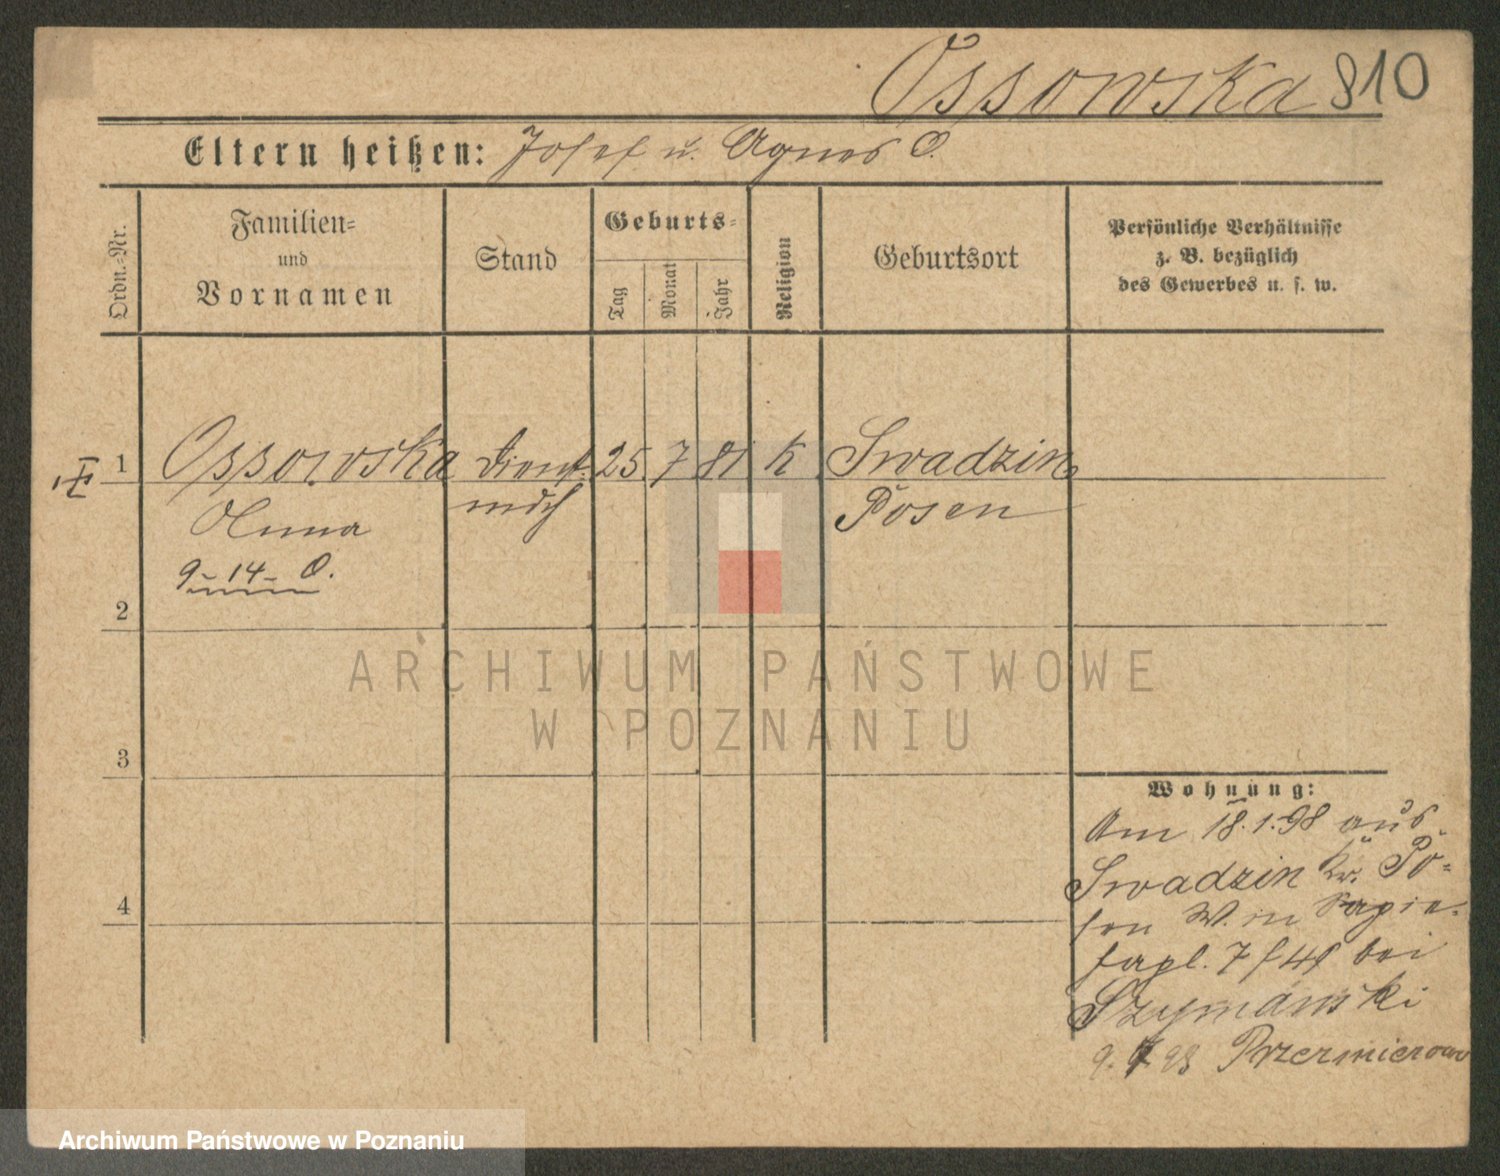 Ossowska 810
Eltern heißen: Josef u. Agnes O.
Ordn.-Nr.
Familien-
und
Vornamen
Stand
Geburts-
Tag
Monat
Jahr
Religion
Geburtsort
Persönliche Verhältnisse
z. B. bezüglich
des Gewerbes u. s. w.
1 Ossowska Dienst- 25. 7 81 K Swadzim
Anna mdch Posen
9-14- O.
2
3
4
Wohnung:
Am 18.1.98 aus
Swadzin Kr. Po-
sen W. in Sapie-
hapl. 7 bei
Szymański
98 Przermierowo
ARCHIWUM PAŃSTWOWE
W POZNANIU
Archiwum Państwowe w Poznaniu